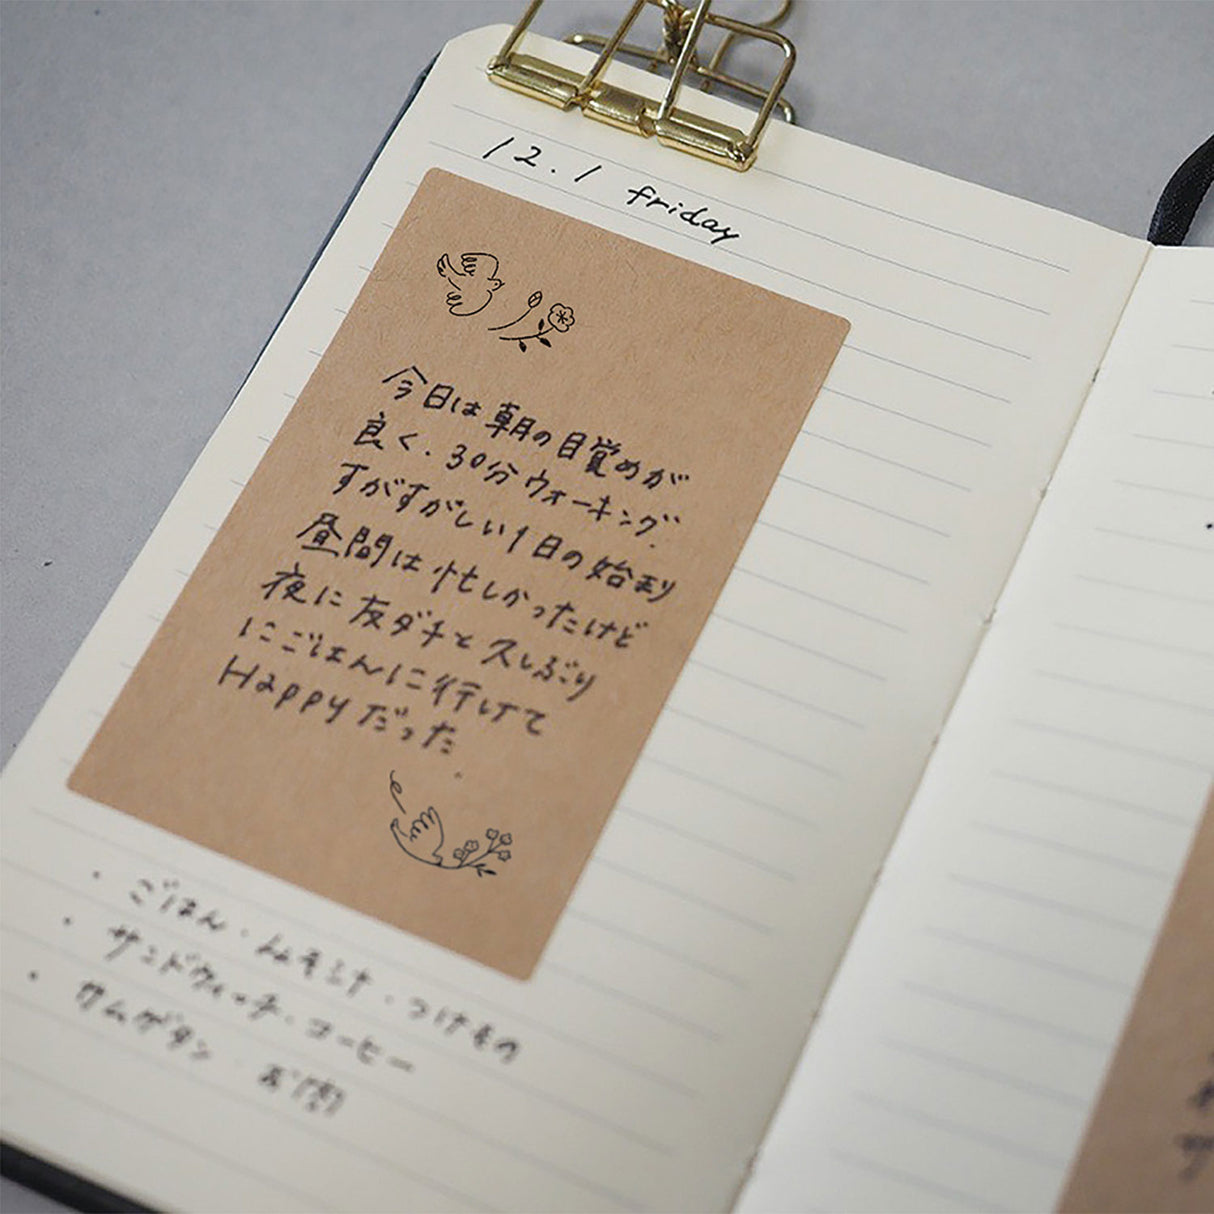 12.1 friday
今日は朝の目覚めが
良く、30分ウォーキング.
すがすがしい1日の始まり
昼間は忙しかったけど
夜に友ダチと久しぶり
にごはんに行けて
Happyだった.
・ごはん・ つけもの
・サンドウィッチ・コーヒー
・サムゲタン・お酒